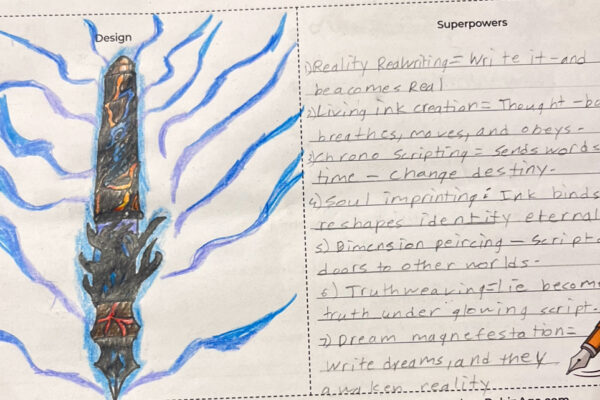 Design
Superpowers
1) Reality Realwriting = Write it - and
beacomes Real
2) Living ink creation = Thought - b
breathes, moves, and obeys -
3) Chrono Scripting = sends words
time - change destiny.
4) Soul imprinting: Ink binds
reshapes identity eternal
5) Dimension peircing - Script
doors to other worlds -
6) Truthweaving = lie becom
truth under glowing script.
7) Dream magnefestation =
write dreams, and they
awaken reality